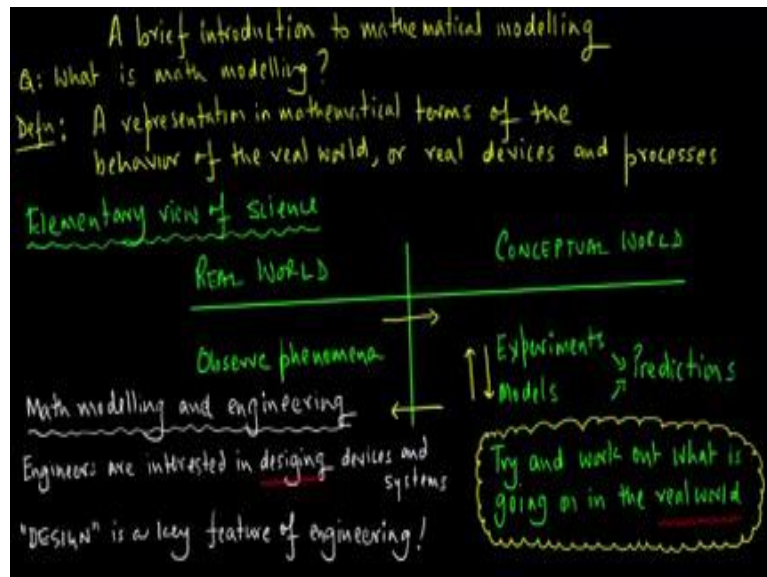 A brief introduction to mathematical modelling
Q: What is math modelling?
Defn: A representation in mathematical terms of the
behavior of the real world, or real devices and processes
Elementary view of science
REAL WORLD
CONCEPTUAL WORLD
Observe phenomena
Experiments
Models
Predictions
Math modelling and engineering
Engineers are interested in desiging devices and
systems
"DESIGN" is a key feature of engineering!
Try and work out what is
going on in the real world